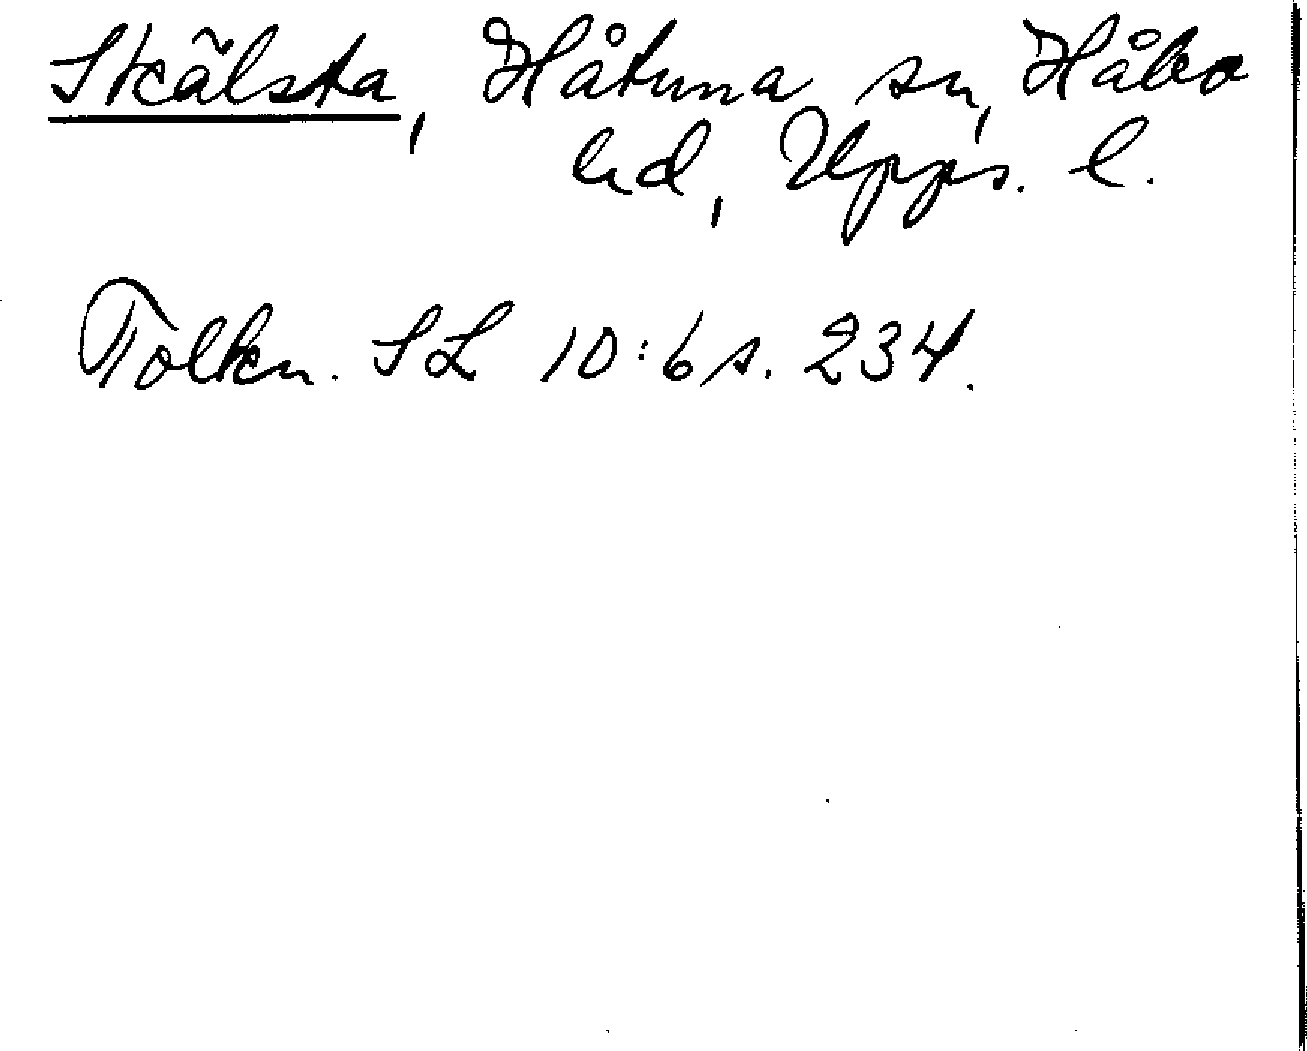 Skälsta, Håtuna sn, Håbo
hd, Upps. l.
Tolkn. SL 10:6 s. 234.